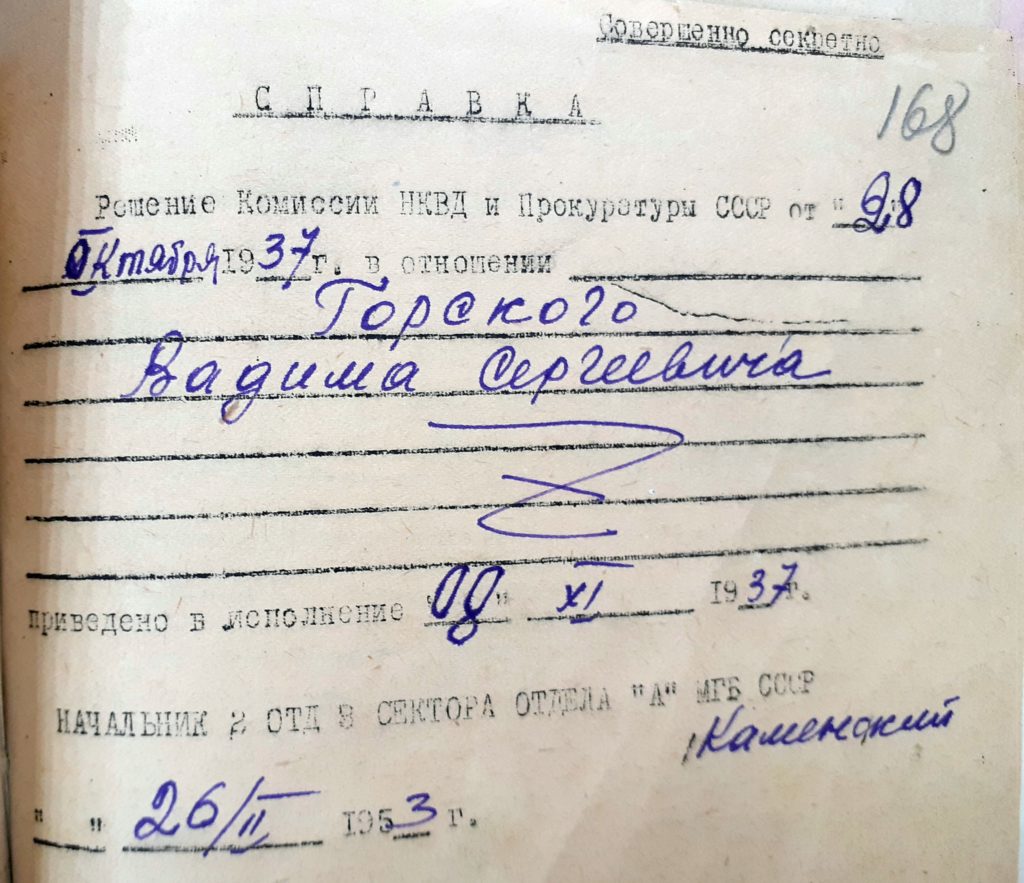 Совершенно секретно
СПРАВКА
168
Решение Комиссии НКВД и Прокуратуры СССР от "28"
Октября 1937 г. в отношении
Горского
Вадима Сергеевича
приведено в исполнение "08" XI 1937 г.
НАЧАЛЬНИК 2 ОТД 3 СЕКТОРА ОТДЕЛА "А" МГБ СССР
Каменский
" " 26/II 1953 г.